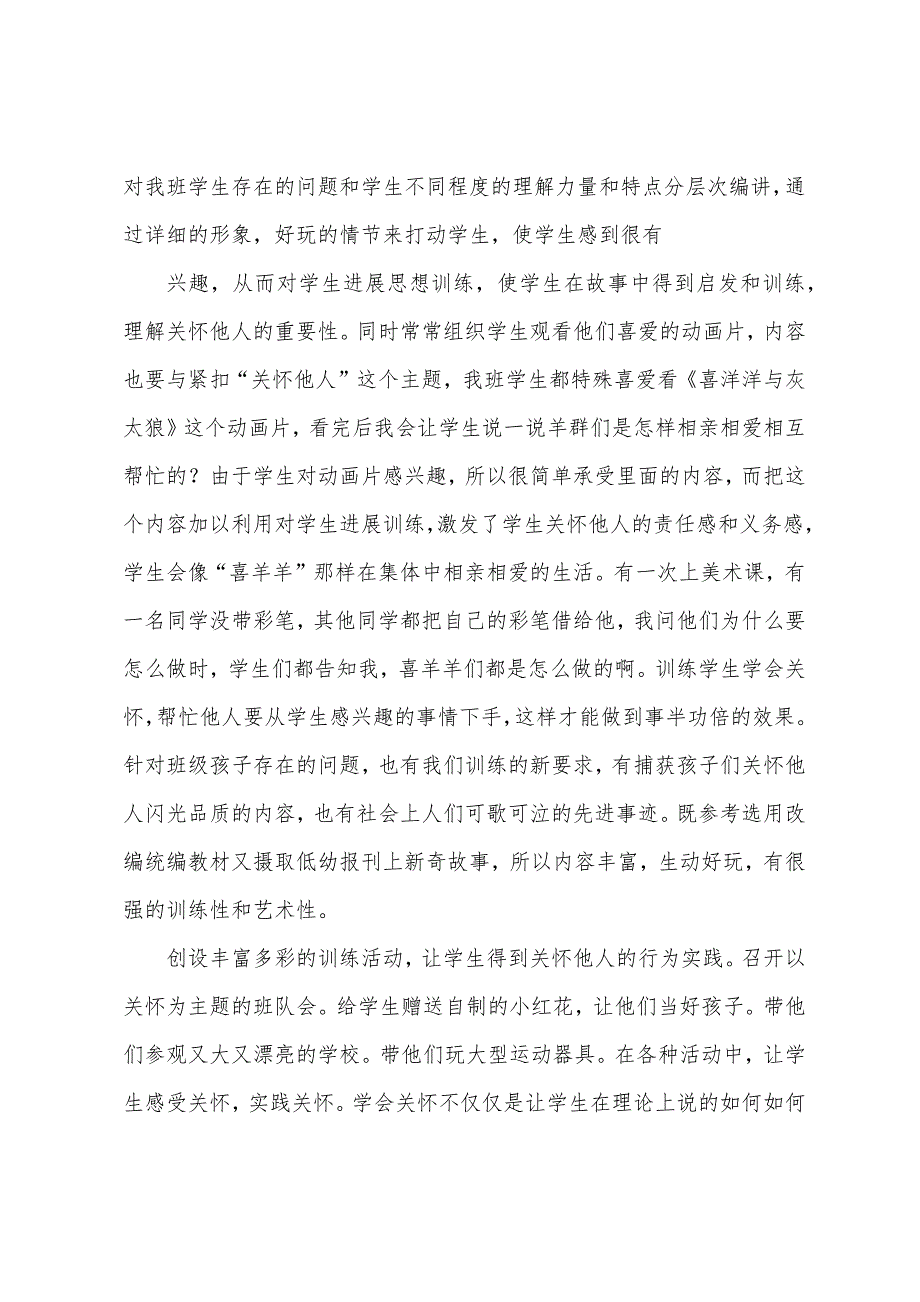 对我班学生存在的问题和学生不同程度的理解力量和特点分层次编讲，通
过详细的形象，好玩的情节来打动学生，使学生感到很有
兴趣，从而对学生进展思想训练，使学生在故事中得到启发和训练，
理解关怀他人的重要性。同时常常组织学生观看他们喜爱的动画片，内容
也要与紧扣“关怀他人”这个主题，我班学生都特殊喜爱看《喜洋洋与灰
太狼》这个动画片，看完后我会让学生说一说羊群们是怎样相亲相爱相互
帮忙的？由于学生对动画片感兴趣，所以很简单承受里面的内容，而把这
个内容加以利用对学生进展训练，激发了学生关怀他人的责任感和义务感，
学生会像“喜羊羊”那样在集体中相亲相爱的生活。有一次上美术课，有
一名同学没带彩笔，其他同学都把自己的彩笔借给他，我问他们为什么要
怎么做时，学生们都告知我，喜羊羊们都是怎么做的啊。训练学生学会关
怀，帮忙他人要从学生感兴趣的事情下手，这样才能做到事半功倍的效果。
针对班级孩子存在的问题，也有我们训练的新要求，有捕获孩子们关怀他
人闪光品质的内容，也有社会上人们可歌可泣的先进事迹。既参考选用改
编统编教材又摄取低幼报刊上新奇故事，所以内容丰富，生动好玩，有很
强的训练性和艺术性。
创设丰富多彩的训练活动，让学生得到关怀他人的行为实践。召开以
关怀为主题的班队会。给学生赠送自制的小红花，让他们当好孩子。带他
们参观又大又漂亮的学校。带他们玩大型运动器具。在各种活动中，让学
生感受关怀，实践关怀。学会关怀不仅仅是让学生在理论上说的如何如何